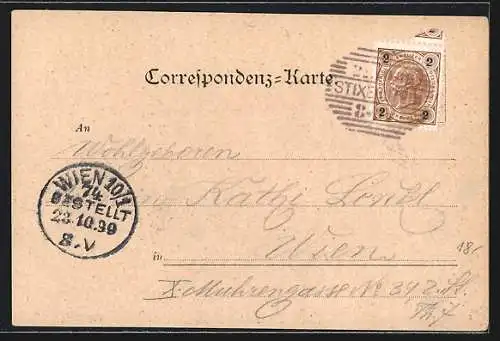 2 2
STIXE
2 2
8
Correspondenz-Karte.
An
Wohlgeboren
WIEN 10/1
74
BESTELLT
23.10.99
8.V
Käthi
Wien
in
X. Muhrengasse No 39 2. St.
Th. 7
18.